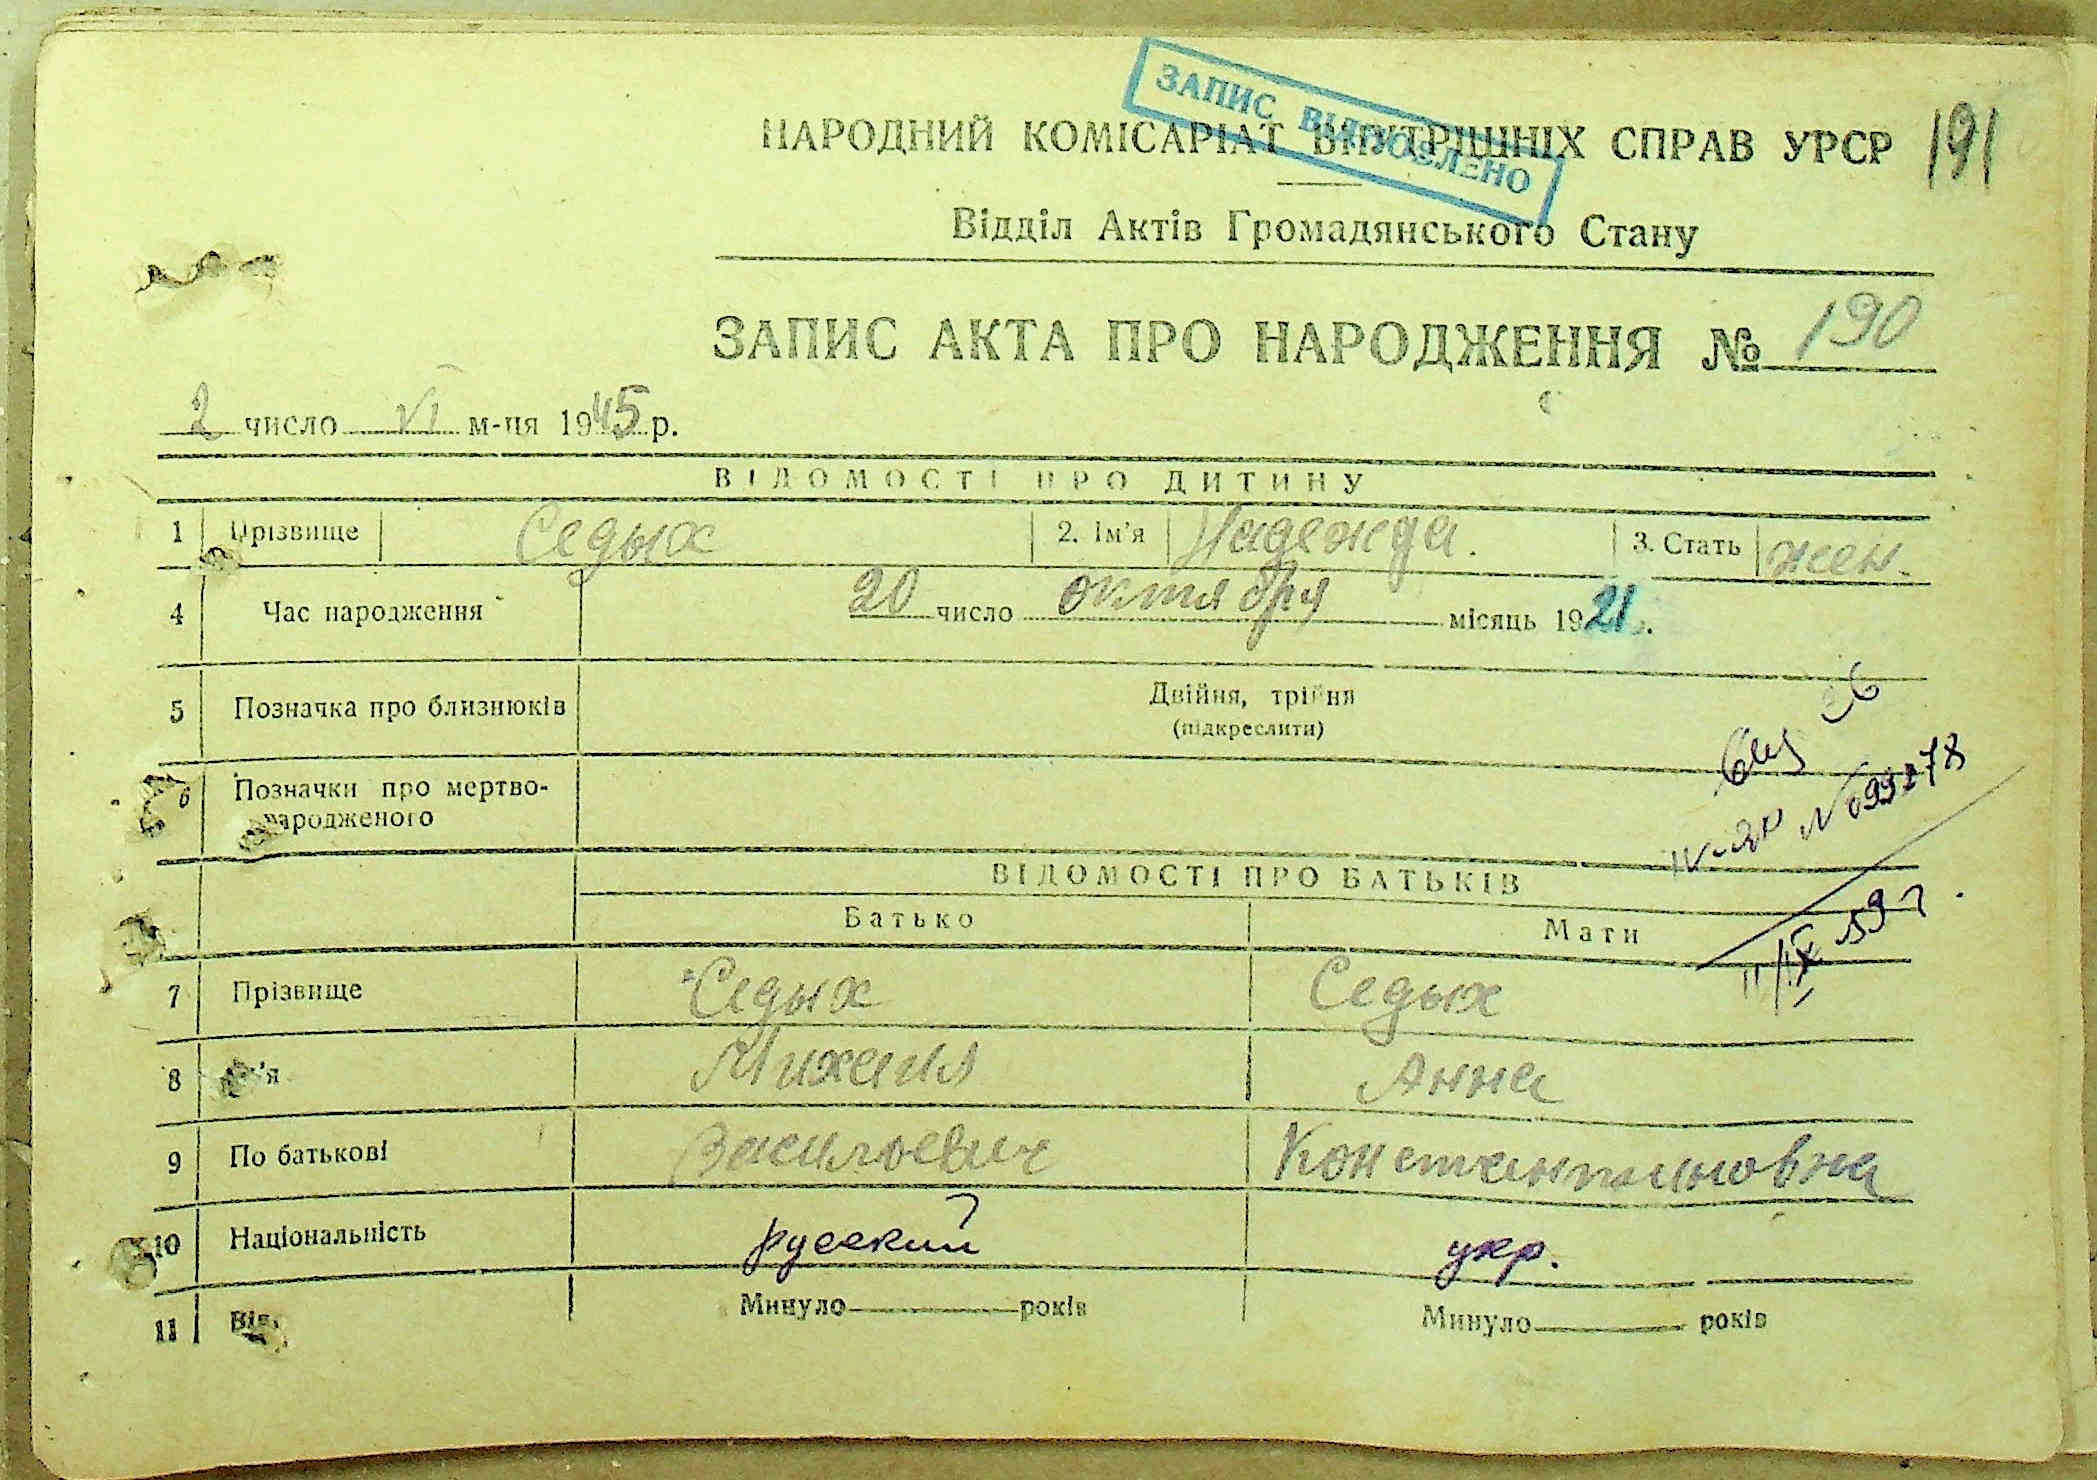 ЗАПИС ВІДНОВЛЕНО
НАРОДНИЙ КОМІСАРІАТ ВНУТРІШНІХ СПРАВ УРСР 191
Відділ Актів Громадянського Стану
ЗАПИС АКТА ПРО НАРОДЖЕННЯ № 190
2 число VI м-ця 1945 р.
ВІДОМОСТІ ПРО ДИТИНУ
1 Прізвище Седых 2. Ім'я Надежда. 3. Стать жен.
4 Час народження 20 число октября місяць 1921.
5 Позначка про близнюків Двійня, трійня
(підкреслити)
6 Позначки про мертво-
народженого
№ 099278
ВІДОМОСТІ ПРО БАТЬКІВ
Батько Мати
11/IX 59 г.
7 Прізвище Седых Седых
8 Ім'я Михаил Анна
9 По батькові Васильевич Константиновна
10 Національність русский укр.
11 Вік Минуло років Минуло років